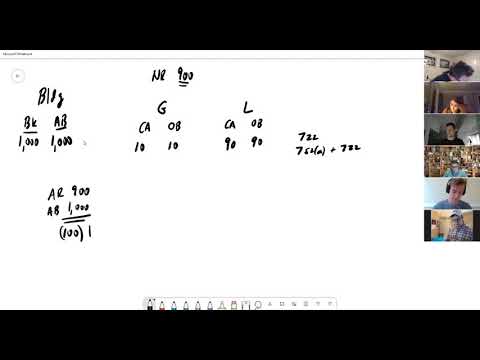 NR 900
Bldg
BK AB
1,000 1,000
G L
CA OB CA OB
10 10 90 90
722
752(a) + 722
AR 900
AB 1,000
(100) |